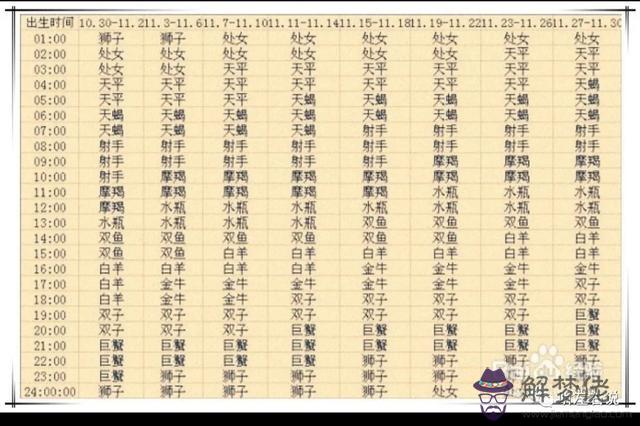 出生时间 10.30-11.2 11.3-11.6 11.7-11.10 11.11-11.14 11.15-11.18 11.19-11.22 11.23-11.26 11.27-11.30
01:00 狮子 狮子 处女 处女 处女 处女 处女 处女
02:00 处女 处女 处女 处女 处女 处女 天平 天平
03:00 处女 处女 天平 天平 天平 天平 天平 天平
04:00 天平 天平 天平 天平 天平 天平 天平 天蝎
05:00 天平 天平 天平 天蝎 天蝎 天蝎 天蝎 天蝎
06:00 天蝎 天蝎 天蝎 天蝎 天蝎 天蝎 天蝎 天蝎
07:00 天蝎 天蝎 天蝎 天蝎 射手 射手 射手 射手
08:00 射手 射手 射手 射手 射手 射手 射手 射手
09:00 射手 射手 射手 射手 射手 摩羯 摩羯 摩羯
10:00 射手 摩羯 摩羯 摩羯 摩羯 摩羯 摩羯 摩羯
11:00 摩羯 摩羯 摩羯 摩羯 摩羯 水瓶 水瓶 水瓶
12:00 摩羯 水瓶 水瓶 水瓶 水瓶 水瓶 水瓶 水瓶
13:00 水瓶 水瓶 水瓶 水瓶 双鱼 双鱼 双鱼 双鱼
14:00 双鱼 双鱼 双鱼 双鱼 双鱼 双鱼 白羊 白羊
15:00 双鱼 双鱼 白羊 白羊 白羊 白羊 白羊 白羊
16:00 白羊 白羊 白羊 白羊 金牛 金牛 金牛 金牛
17:00 白羊 金牛 金牛 金牛 金牛 金牛 金牛 双子
18:00 白羊 金牛 金牛 双子 双子 双子 双子 双子
19:00 双子 双子 双子 双子 双子 双子 双子 巨蟹
20:00 双子 双子 双子 巨蟹 巨蟹 巨蟹 巨蟹 巨蟹
21:00 巨蟹 巨蟹 巨蟹 巨蟹 巨蟹 巨蟹 巨蟹 巨蟹
22:00 巨蟹 巨蟹 巨蟹 巨蟹 狮子 狮子 狮子 狮子
23:00 巨蟹 狮子 狮子 狮子 狮子 狮子
24:00:00 狮子 狮子 狮子 狮子 狮子 处女
解梦佬
www.jiemenglao.com